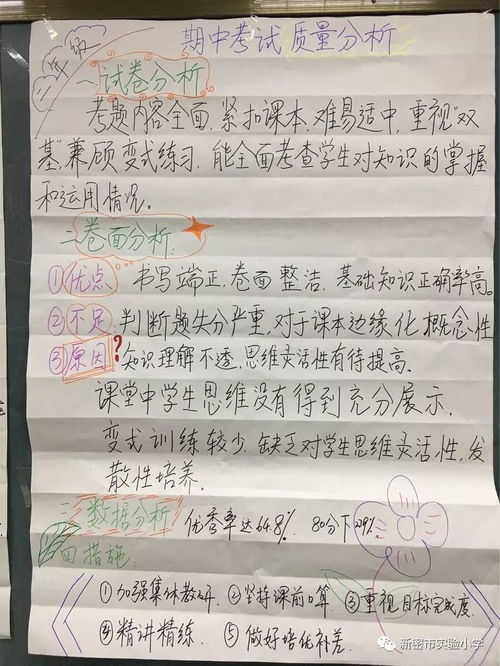 二年级
期中考试质量分析
一、试卷分析
考题内容全面，紧扣课本，难易适中，重视"双
基"，兼顾变式练习，能全面考查学生对知识的掌握
和运用情况。
二、卷面分析：
①优点 书写端正，卷面整洁，基础知识正确率高。
②不足 判断题失分严重，对于课本边缘化概念性
③原因？知识理解不透，思维灵活性有待提高。
课堂中学生思维没有得到充分展示，
变式训练较少，缺乏对学生思维灵活性，发
散性培养。
三、数据分析 优秀率达64.8%，80分下29%
四、措施
①加强集体教研，②坚持课前口算，③重视目标完成度，
④精讲精练，⑤做好培优补差。
新密市实验小学